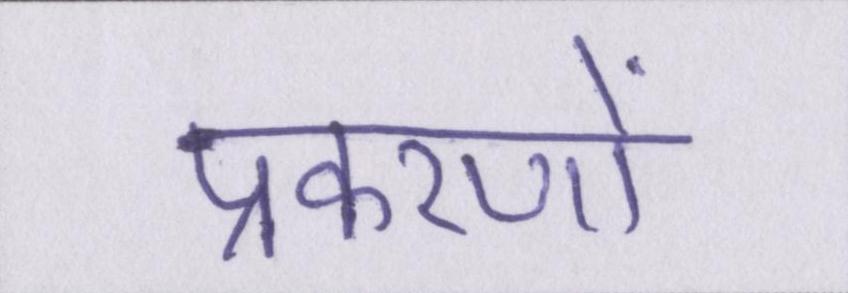 प्रकरणों